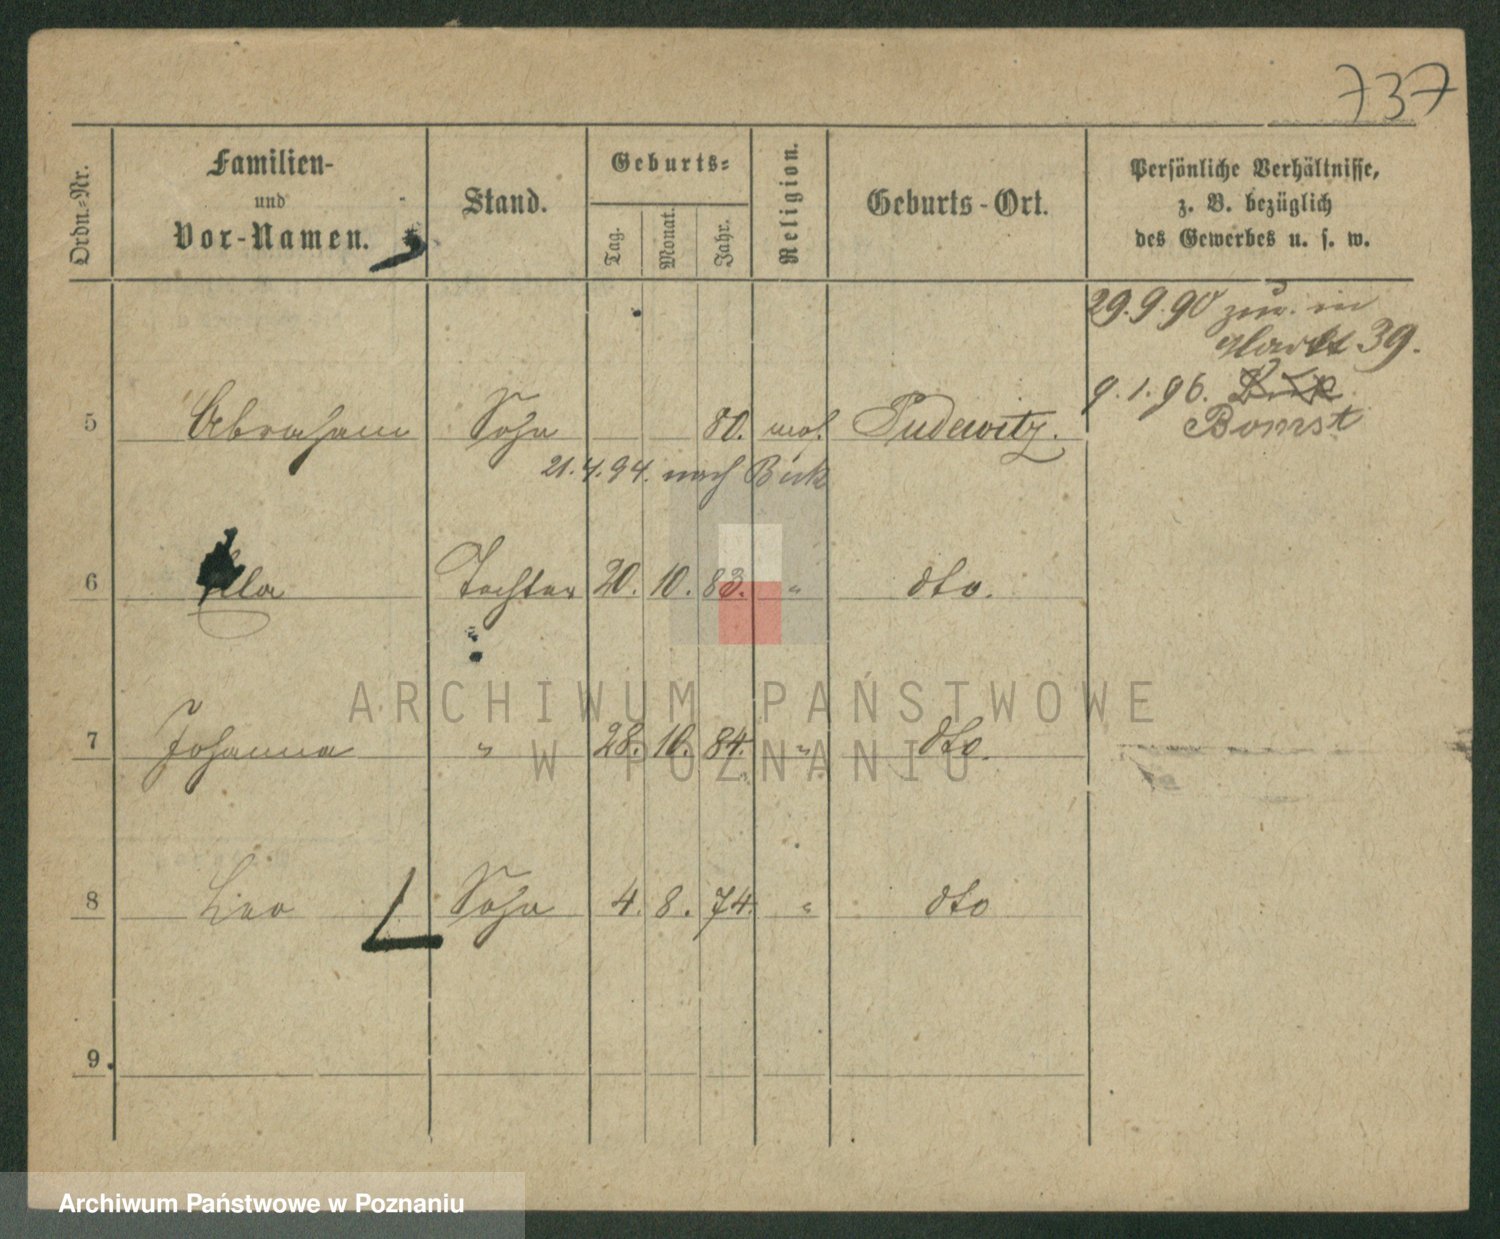 737
Ordn.-Nr.
Familien-
und
Vor-Namen.
Stand.
Geburts-
Tag.
Monat.
Jahr.
Religion.
Geburts-Ort.
Persönliche Verhältnisse,
z. B. bezüglich
des Gewerbes u. s. w.
29.9.90 zur. in
Markt 39.
9.1.96.
Bomst
5 Abraham Sohn 80. mos. Pudewitz.
21.4.94. nach Buk
6 Ella Tochter 20. 10. 83. " dto.
7 Johanna " 28. 10. 84. " dto.
8 Leo Sohn 4. 8. 74. " dto
9
ARCHIWUM PAŃSTWOWE
W POZNANIU
Archiwum Państwowe w Poznaniu